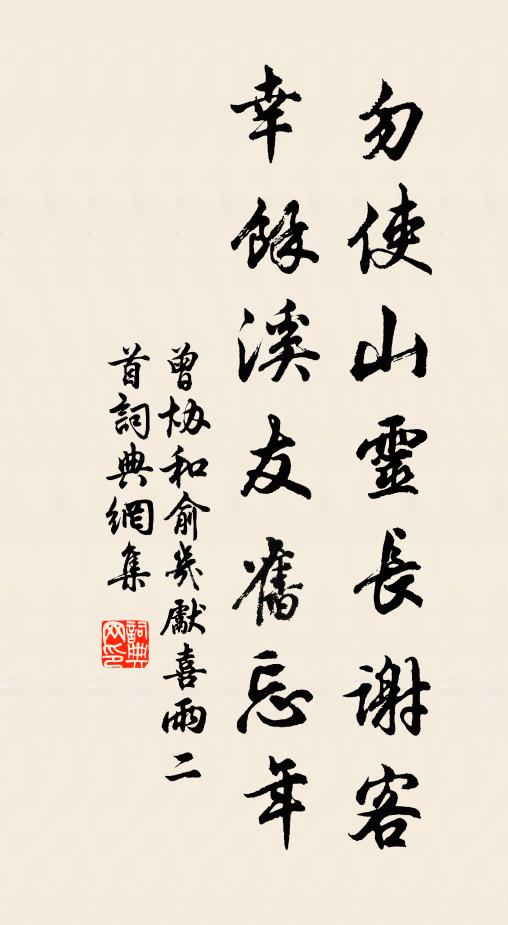 勿使山靈長謝客
幸餘溪友舊忘年
曾协和俞幾獻喜雨二
首詞典網集
詞典网印